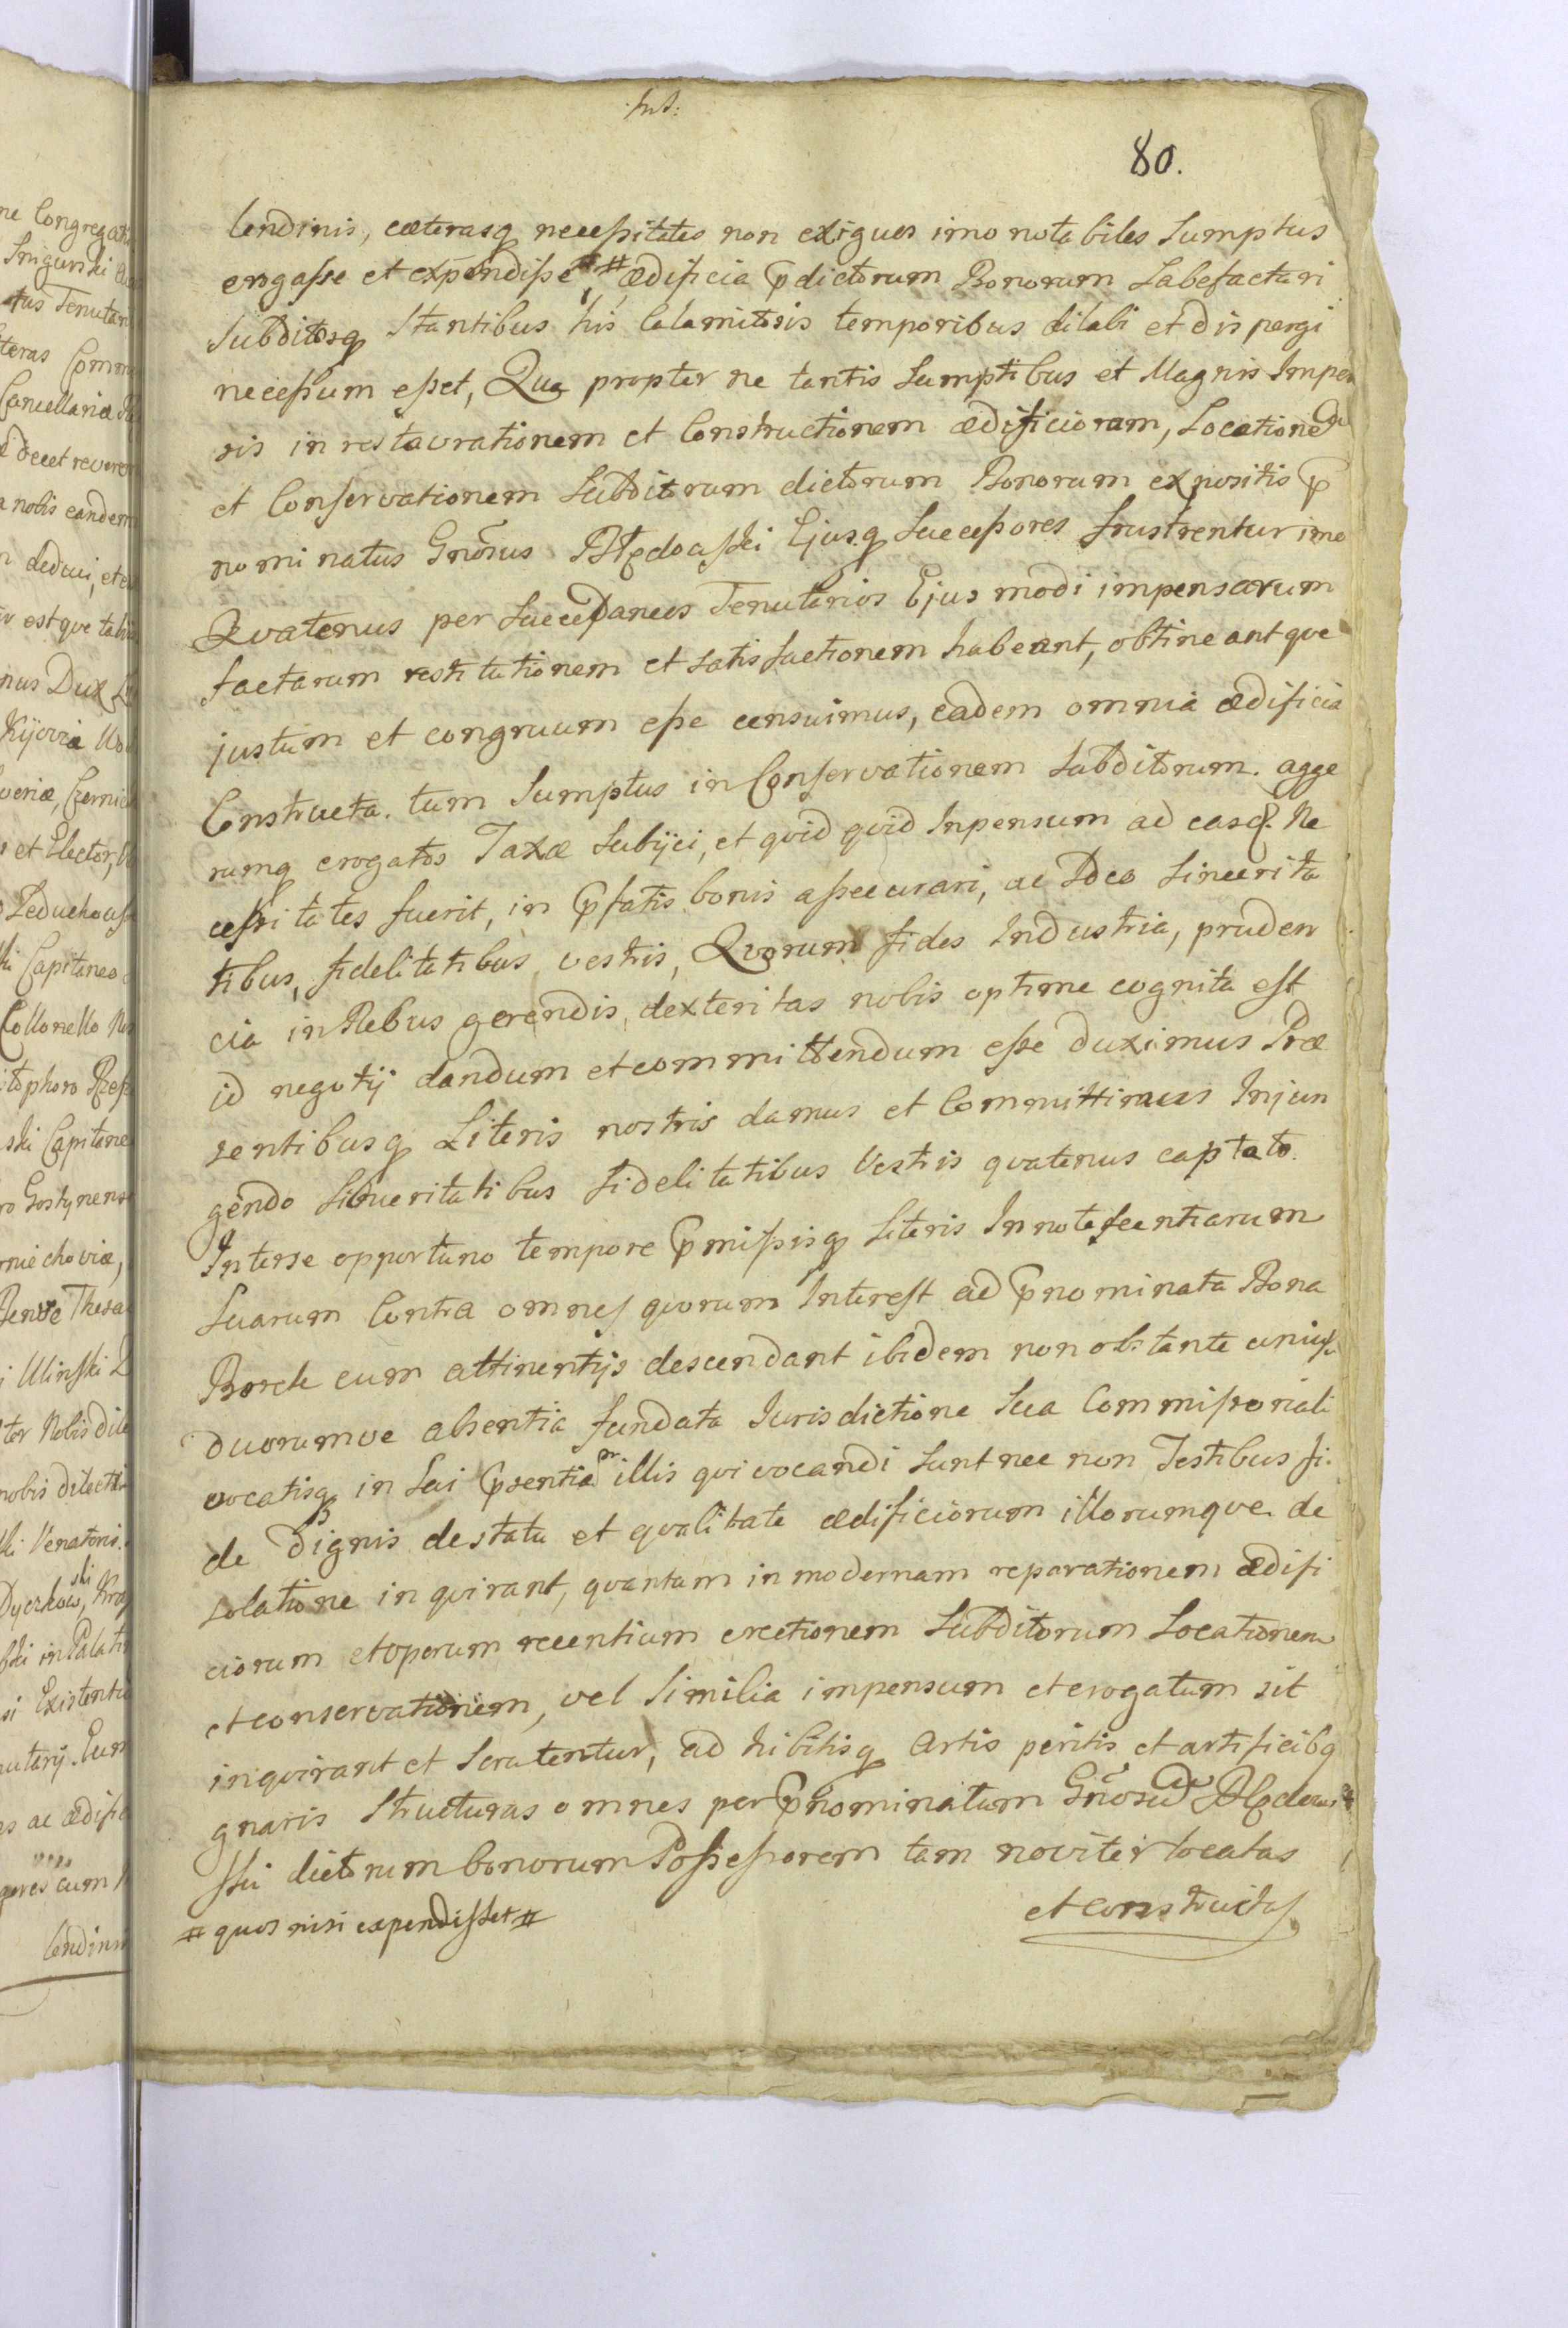 80.
lendinis, cæterasq necessitates non exiguos imo notabiles Sumptus
erogasse et expendisse, # ædificia prdictorum Bonorum Labefactari
Subditosq Stantibus his Calamitosis temporibus dilabi et dispergi
necessum esset, Qua propter ne tantis Sumptibus et Magnis Impen
sis in restaurationem et Constructionem ædificiorum, Locatione
et Conservationem Subditorum dictorum Bonorum expositis pr
nominatus Gnosus Ejusq Successores frustrentur imo
Qvatenus per Succedaneos Tenutarios Ejus modi impensarum
factarum restitutionem et satisfactionem habeant, obtineantqve
justum et congruum esse censuimus, eadem omnia ædificia
Constructa. tum Sumptus in Conservationem Subditorum. agge
rumq erogatos Taxæ Subijci, et qvid qvid Inpensum ad easq. Ne
cessitates fuerit, in prfatis bonis assecurari, ac Ideo Sincerita
tibus, fidelitatibus vestris, Qvorum fides Industria, pruden
cia in Rebus gerendis, dexteritas nobis optime cognita est
id negotij dandum et committendum esse duximus Præ
sentibusq Literis nostris damus et Committimus Injun
gendo Sinceritatibus fidelitatibus Vestris qvatenus captato.
Interse opportuno tempore prmissisq Literis Innotescentiarum
Suarum Contra omnes qvorum Interest ad prnominata Bona
Borek cum attinentijs descendant ibidem non obstante unius
duorumve absentia fundata Jurisdictione Sua Commissoriali
vocatisq in Sui prsentia illis qvi vocandi Sunt nec non Testibus fi.
de Dignis de statu et qvalitate ædificiorum illorumqve de
solatione inqvirant, qvantum in modernam reparationem ædifi
ciorum et operum recentium erectionem Subditorum Locationem
et conservationem, vel Similia impensum et erogatum sit
inqvirant et Scrutentur, ad hibitisq Artis peritis et artificibq
gnaris Structuras omnes per prnominatum Gnosum
ski dictorum bonorum Possessorem tam noviter locatas
et constructas
# quos nisi expendisset #